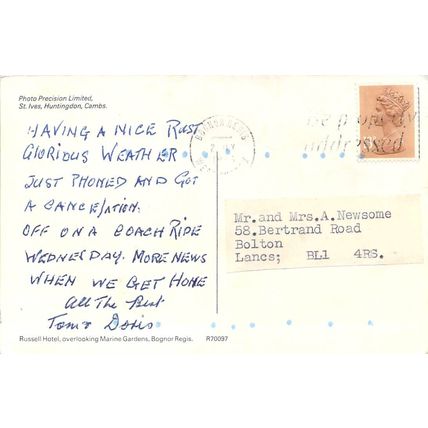 Photo Precision Limited,
St. Ives, Huntingdon, Cambs.
HAVING A NICE REST
GLORIOUS WEATHER.
JUST PHONED AND GOT
A CANCElATION.
OFF ON A COACH RIDE
WEDNESDAY. MORE NEWS
WHEN WE GET HOME
All The Best
Tom & Doris
Russell Hotel, overlooking Marine Gardens, Bognor Regis. R70097
BOGNOR REGIS
addressed
Mr.and Mrs.A.Newsome
58.Bertrand Road
Bolton
Lancs; BL1 4RS.